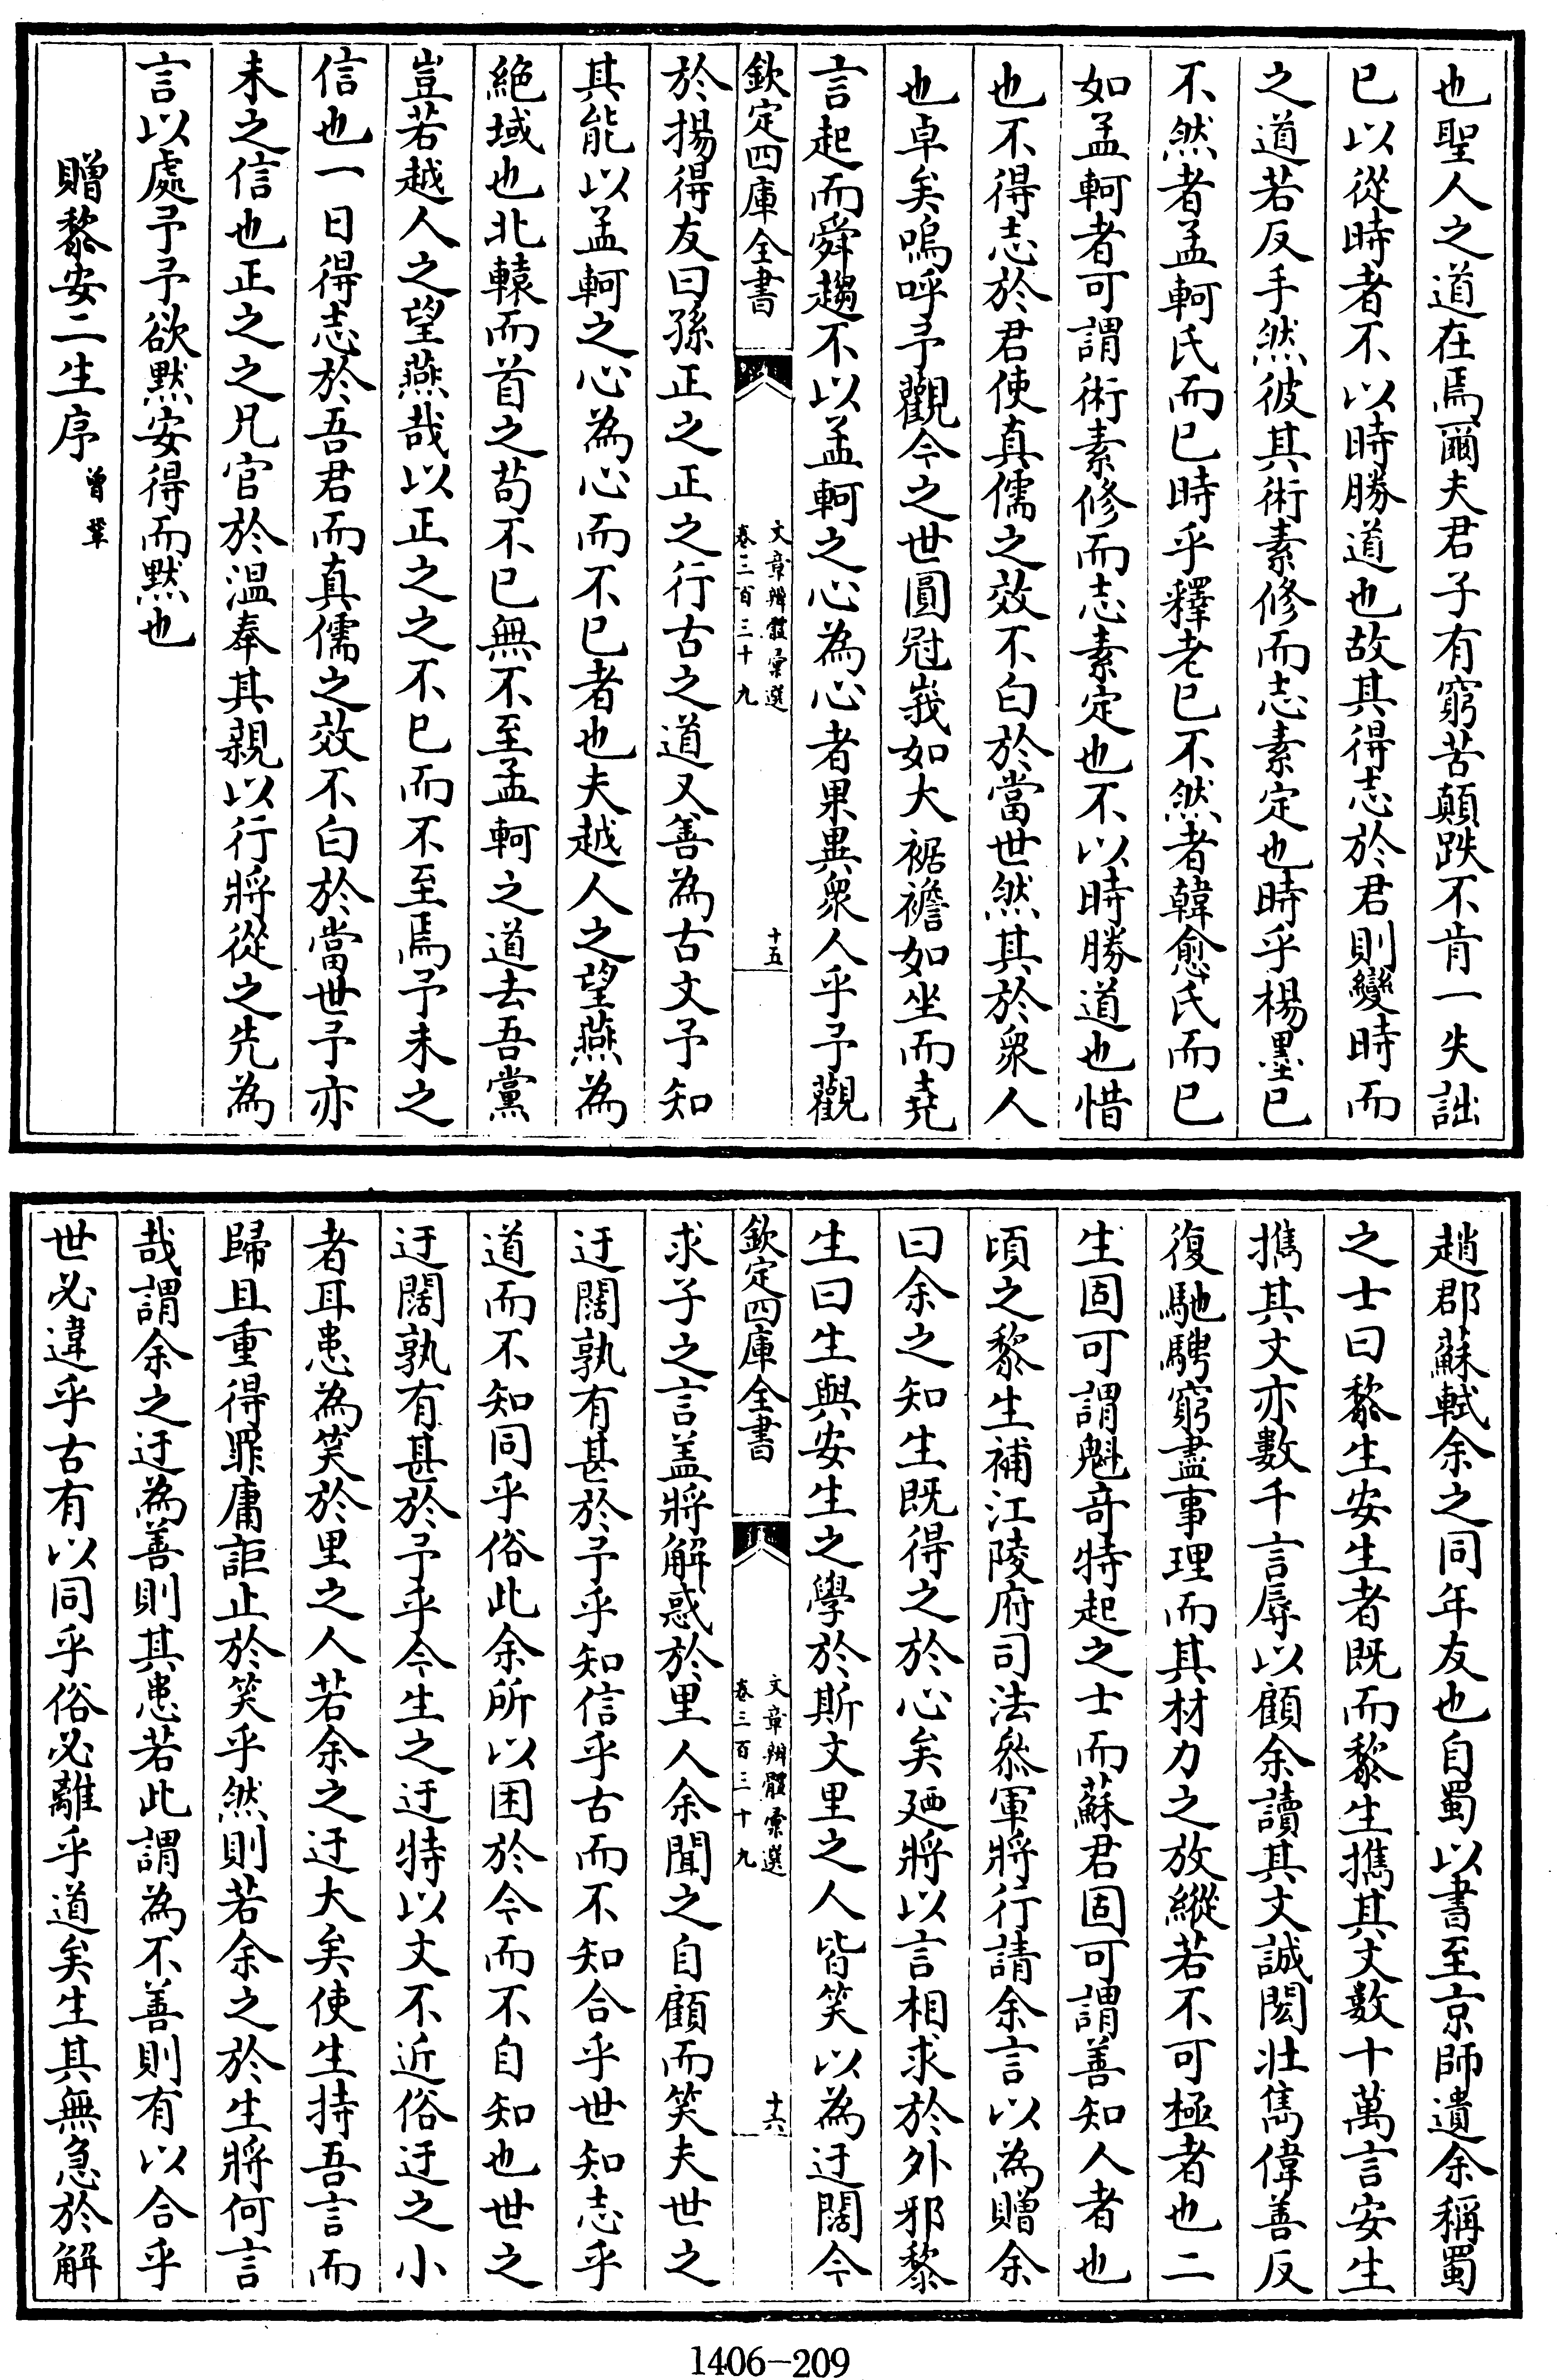 也聖人之道在焉爾夫君子有窮苦顛跌不肯一失詘
已以從時者不以時勝道也故其得志於君則變時而
之道若反手然彼其術素修而志素定也時乎楊墨已
不然者孟軻氏而已時乎釋老已不然者韓愈氏而已
如孟軻者可謂術素修而志素定也不以時勝道也惜
也不得志於君使真儒之效不白於當世然其於衆人
也卓矣嗚呼予觀今之世圓冠峩如大裾襜如坐而堯
言起而舜趨不以孟軻之心為心者果異衆人乎予觀
欽定四庫全書
文章辨體彚選
卷三百三十九
十五
於揚得友曰孫正之正之行古之道又善為古文予知
其能以孟軻之心為心而不已者也夫越人之望燕為
絶域也北轅而首之茍不已無不至孟軻之道去吾黨
豈若越人之望燕哉以正之之不已而不至焉予未之
信也一日得志於吾君而真儒之效不白於當世予亦
未之信也正之之凡官於温奉其親以行將從之先為
言以處予予欲黙安得而黙也
贈黎安二生序 曾鞏
趙郡蘇軾余之同年友也自蜀以書至京師遺余稱蜀
之士曰黎生安生者既而黎生攜其文數十萬言安生
攜其文亦數千言辱以顧余讀其文誠閎壯雋偉善反
復馳騁窮盡事理而其材力之放縱若不可極者也二
生固可謂魁竒特起之士而蘇君固可謂善知人者也
頃之黎生補江陵府司法叅軍將行請余言以為贈余
曰余之知生既得之於心矣廼將以言相求於外邪黎
生曰生與安生之學於斯文里之人皆笑以為迂闊今
欽定四庫全書
文章辨體彚選
卷三百三十九
十六
求子之言盖將解惑於里人余聞之自顧而笑夫世之
迂闊孰有甚於予乎知信乎古而不知合乎世知志乎
道而不知同乎俗此余所以困於今而不自知也世之
迂闊孰有甚於予乎今生之迂特以文不近俗迂之小
者耳患為笑於里之人若余之迂大矣使生持吾言而
歸且重得罪庸詎止於笑乎然則若余之於生將何言
哉謂余之迂為善則其患若此謂為不善則有以合乎
世必違乎古有以同乎俗必離乎道矣生其無急於解
1406-209